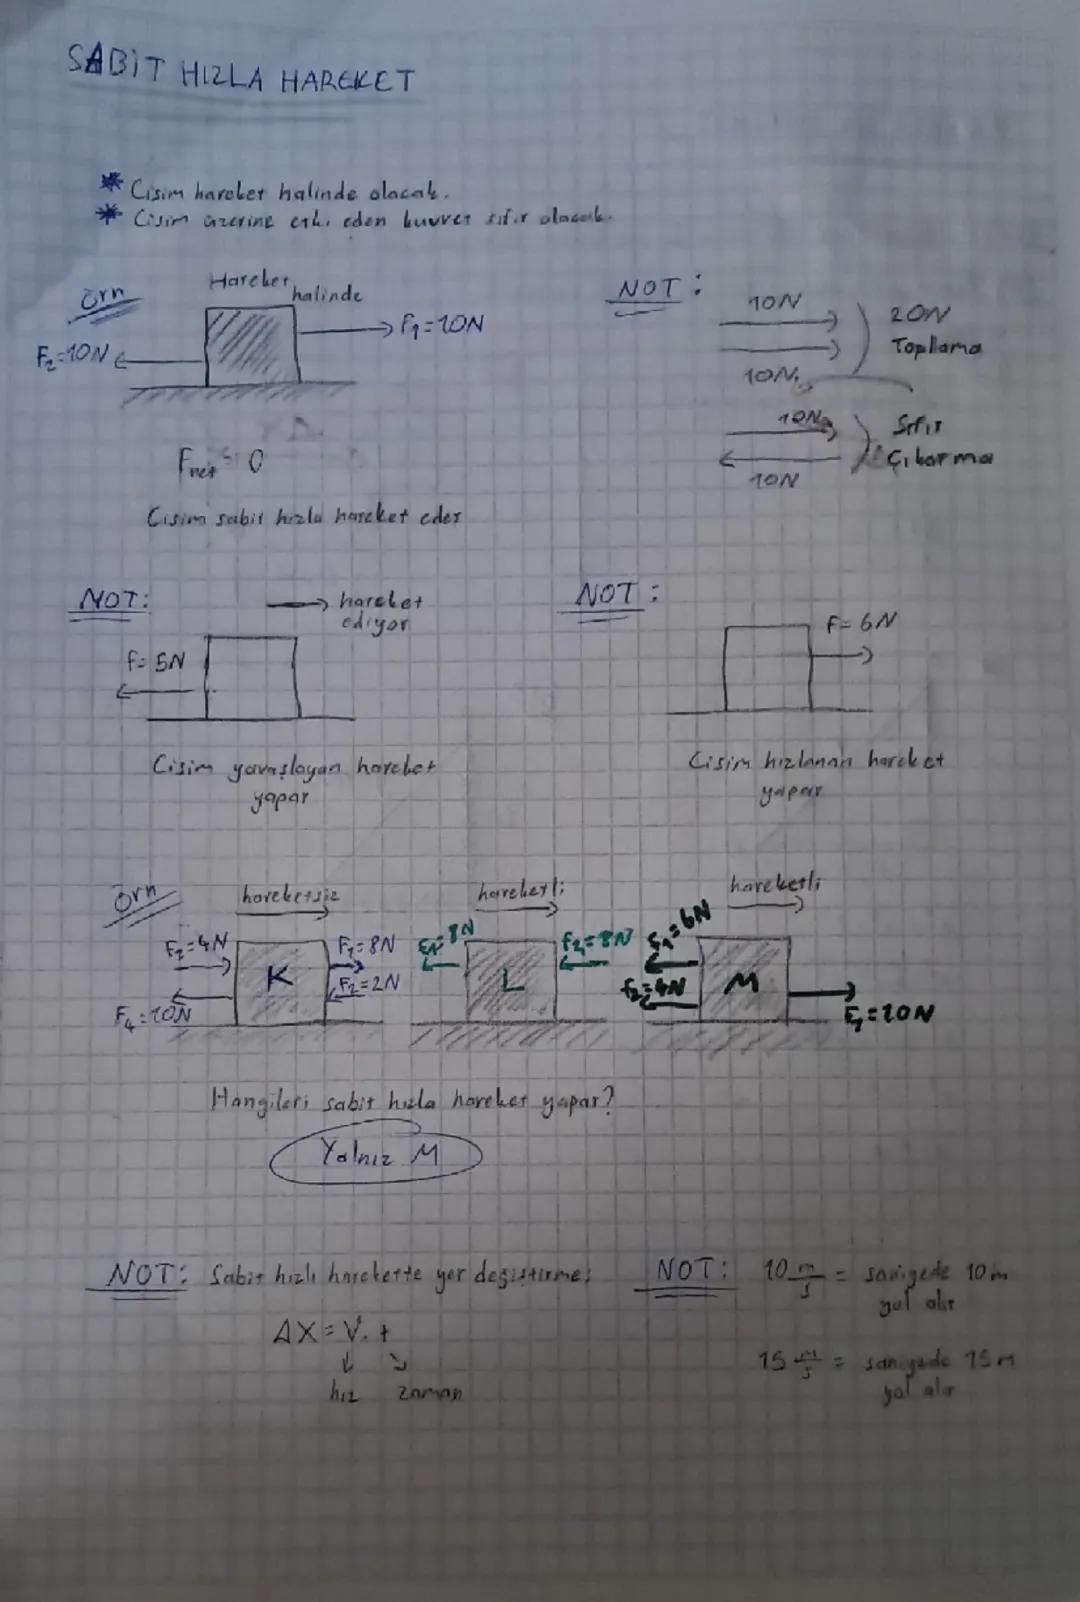 SABİT HIZLA HAREKET
* Cisim hareket halinde olacak.
* Cisim üzerine etki eden kuvvet sıfır olacak.
Örn
Hareket halinde
F₂=10N
F₁=10N
Fnet = 0
Cisim sabit hızla hareket eder
NOT:
10N
10N
20N
Toplama
10N
10N
Sıfır
Çıkarma
NOT:
hareket
ediyor
F=5N
Cisim yavaşlayan hareket
yapar
NOT:
F=6N
Cisim hızlanan hareket
yapar
Örn
hareketsiz
F₂=4N
F₄=10N
K
F₁=8N
F₂=2N
hareketli
F₁=8N
L
F₂=8N
hareketli
F₁=6N
F₂=4N
M
F₁=10N
Hangileri sabit hızla hareket yapar?
Yalnız M
NOT: Sabit hızlı harekette yer değiştirme;
ΔX=V.t
hız zaman
NOT: 10 m/s = saniyede 10m
yol alır
15 m/s = saniyede 15m
yol alır